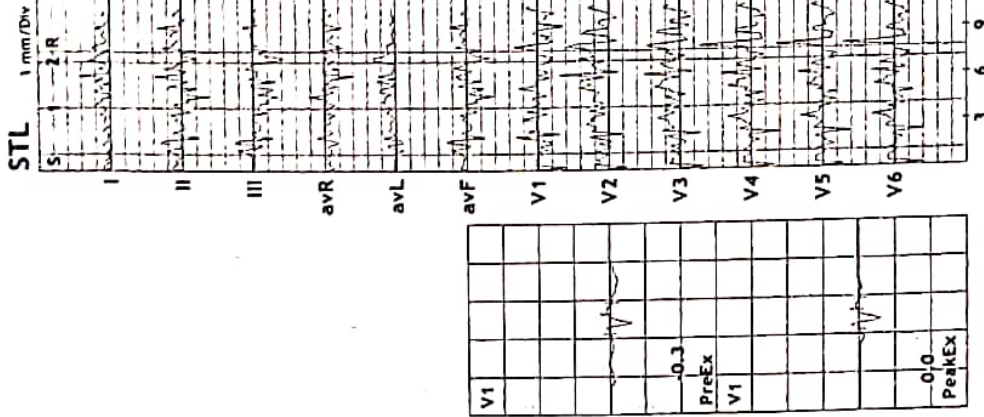 STL
1 mm/Div
S 1 2 R
I
II
III
avR
avL
avF
V1
V2
V3
V4
V5
V6
3 6 9
V1
-0.3
PreEx
V1
-0.0
PeakEx